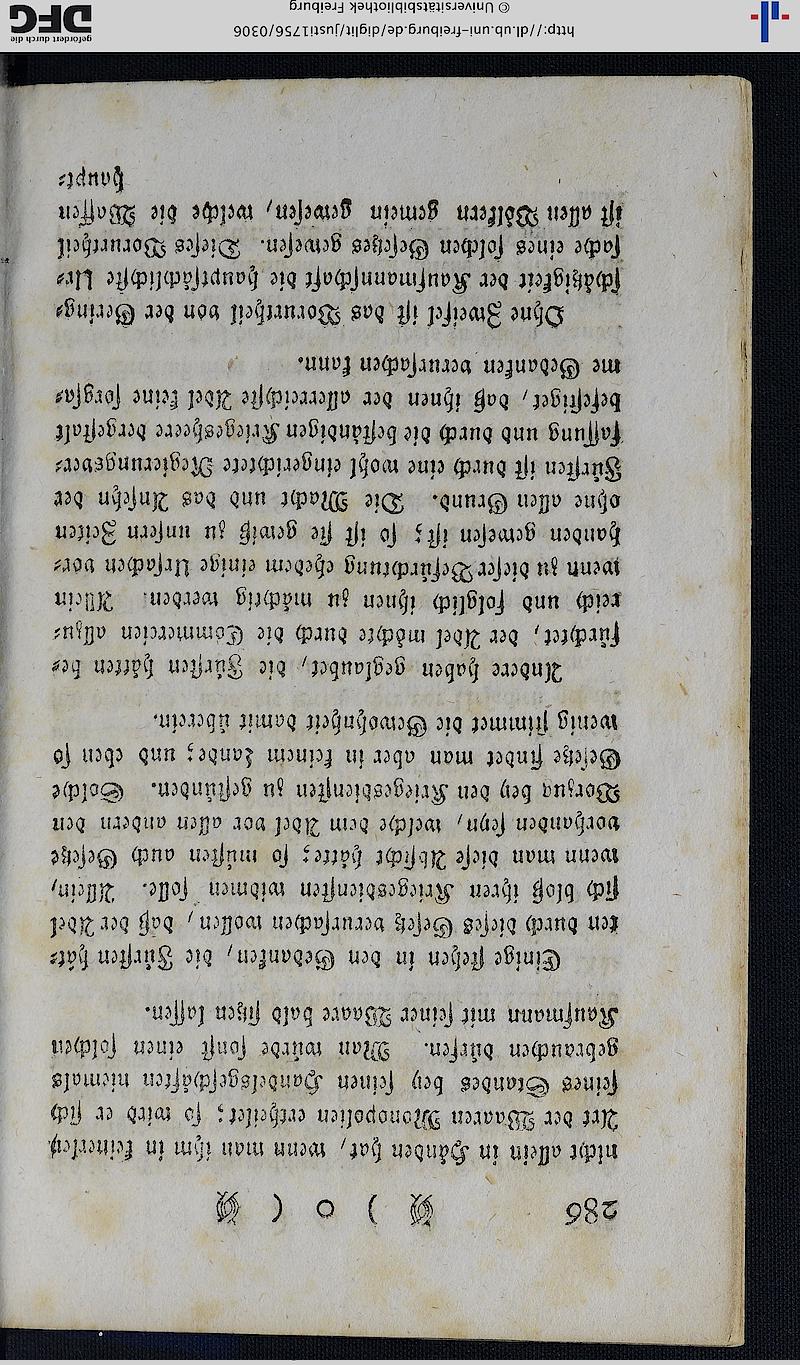 286 ❦ ) o ( ❦
nicht allein in Händen hat, wenn man ihm in keinerley
Art der Waaren Monopolien ertheilet; so wird er sich
seines Standes bey seinen Handelsgeschäften niemals
gebrauchen dürfen. Man würde sonst einen solchen
Kaufmann mit seiner Waare bald sitzen lassen.
Einige stehen in den Gedanken, die Fürsten hät-
ten durch dieses Gesetz verursachen wollen, daß der Adel
sich blos ihren Kriegesdiensten widmen solle. Allein,
wenn man diese Absicht hatte; so müsten auch Gesetze
vorhanden seyn, welche dem Adel vor allen andern den
Vorzug bey den Kriegesdiensten zu gestünden. Solche
Gesetze findet man aber in keinem Lande; und eben so
wenig stimmet die Gewohnheit damit überein.
Andere haben geglaubet, die Fürsten hätten be-
fürchtet, der Adel möchte durch die Commercien allzu-
reich und folglich ihnen zu mächtig werden. Allein
wenn zu dieser Befürchtung ehedem einige Ursachen vor-
handen gewesen ist; so ist sie gewiß zu unsern Zeiten
ohne allen Grund. Die Macht und das Ansehn der
Fürsten ist durch eine wohl eingerichtete Regierungsver-
fassung und durch die beständigen Kriegesheere dergestalt
befestiget, daß ihnen der allerreichste Adel keine sorgsa-
me Gedanken verursachen kann.
Ohne Zweifel ist das Vorurtheil von der Gering-
schätzigkeit der Kaufmannschaft die hauptsächlichste Ur-
sache eines solchen Gesetzes gewesen. Dieses Vorurtheil
ist allen Völkern gemein gewesen, welche die Waffen
haupt-
http://dl.ub.uni-freiburg.de/diglit/justi1756/0306
© Universitätsbibliothek Freiburg
gefördert durch die
DFG